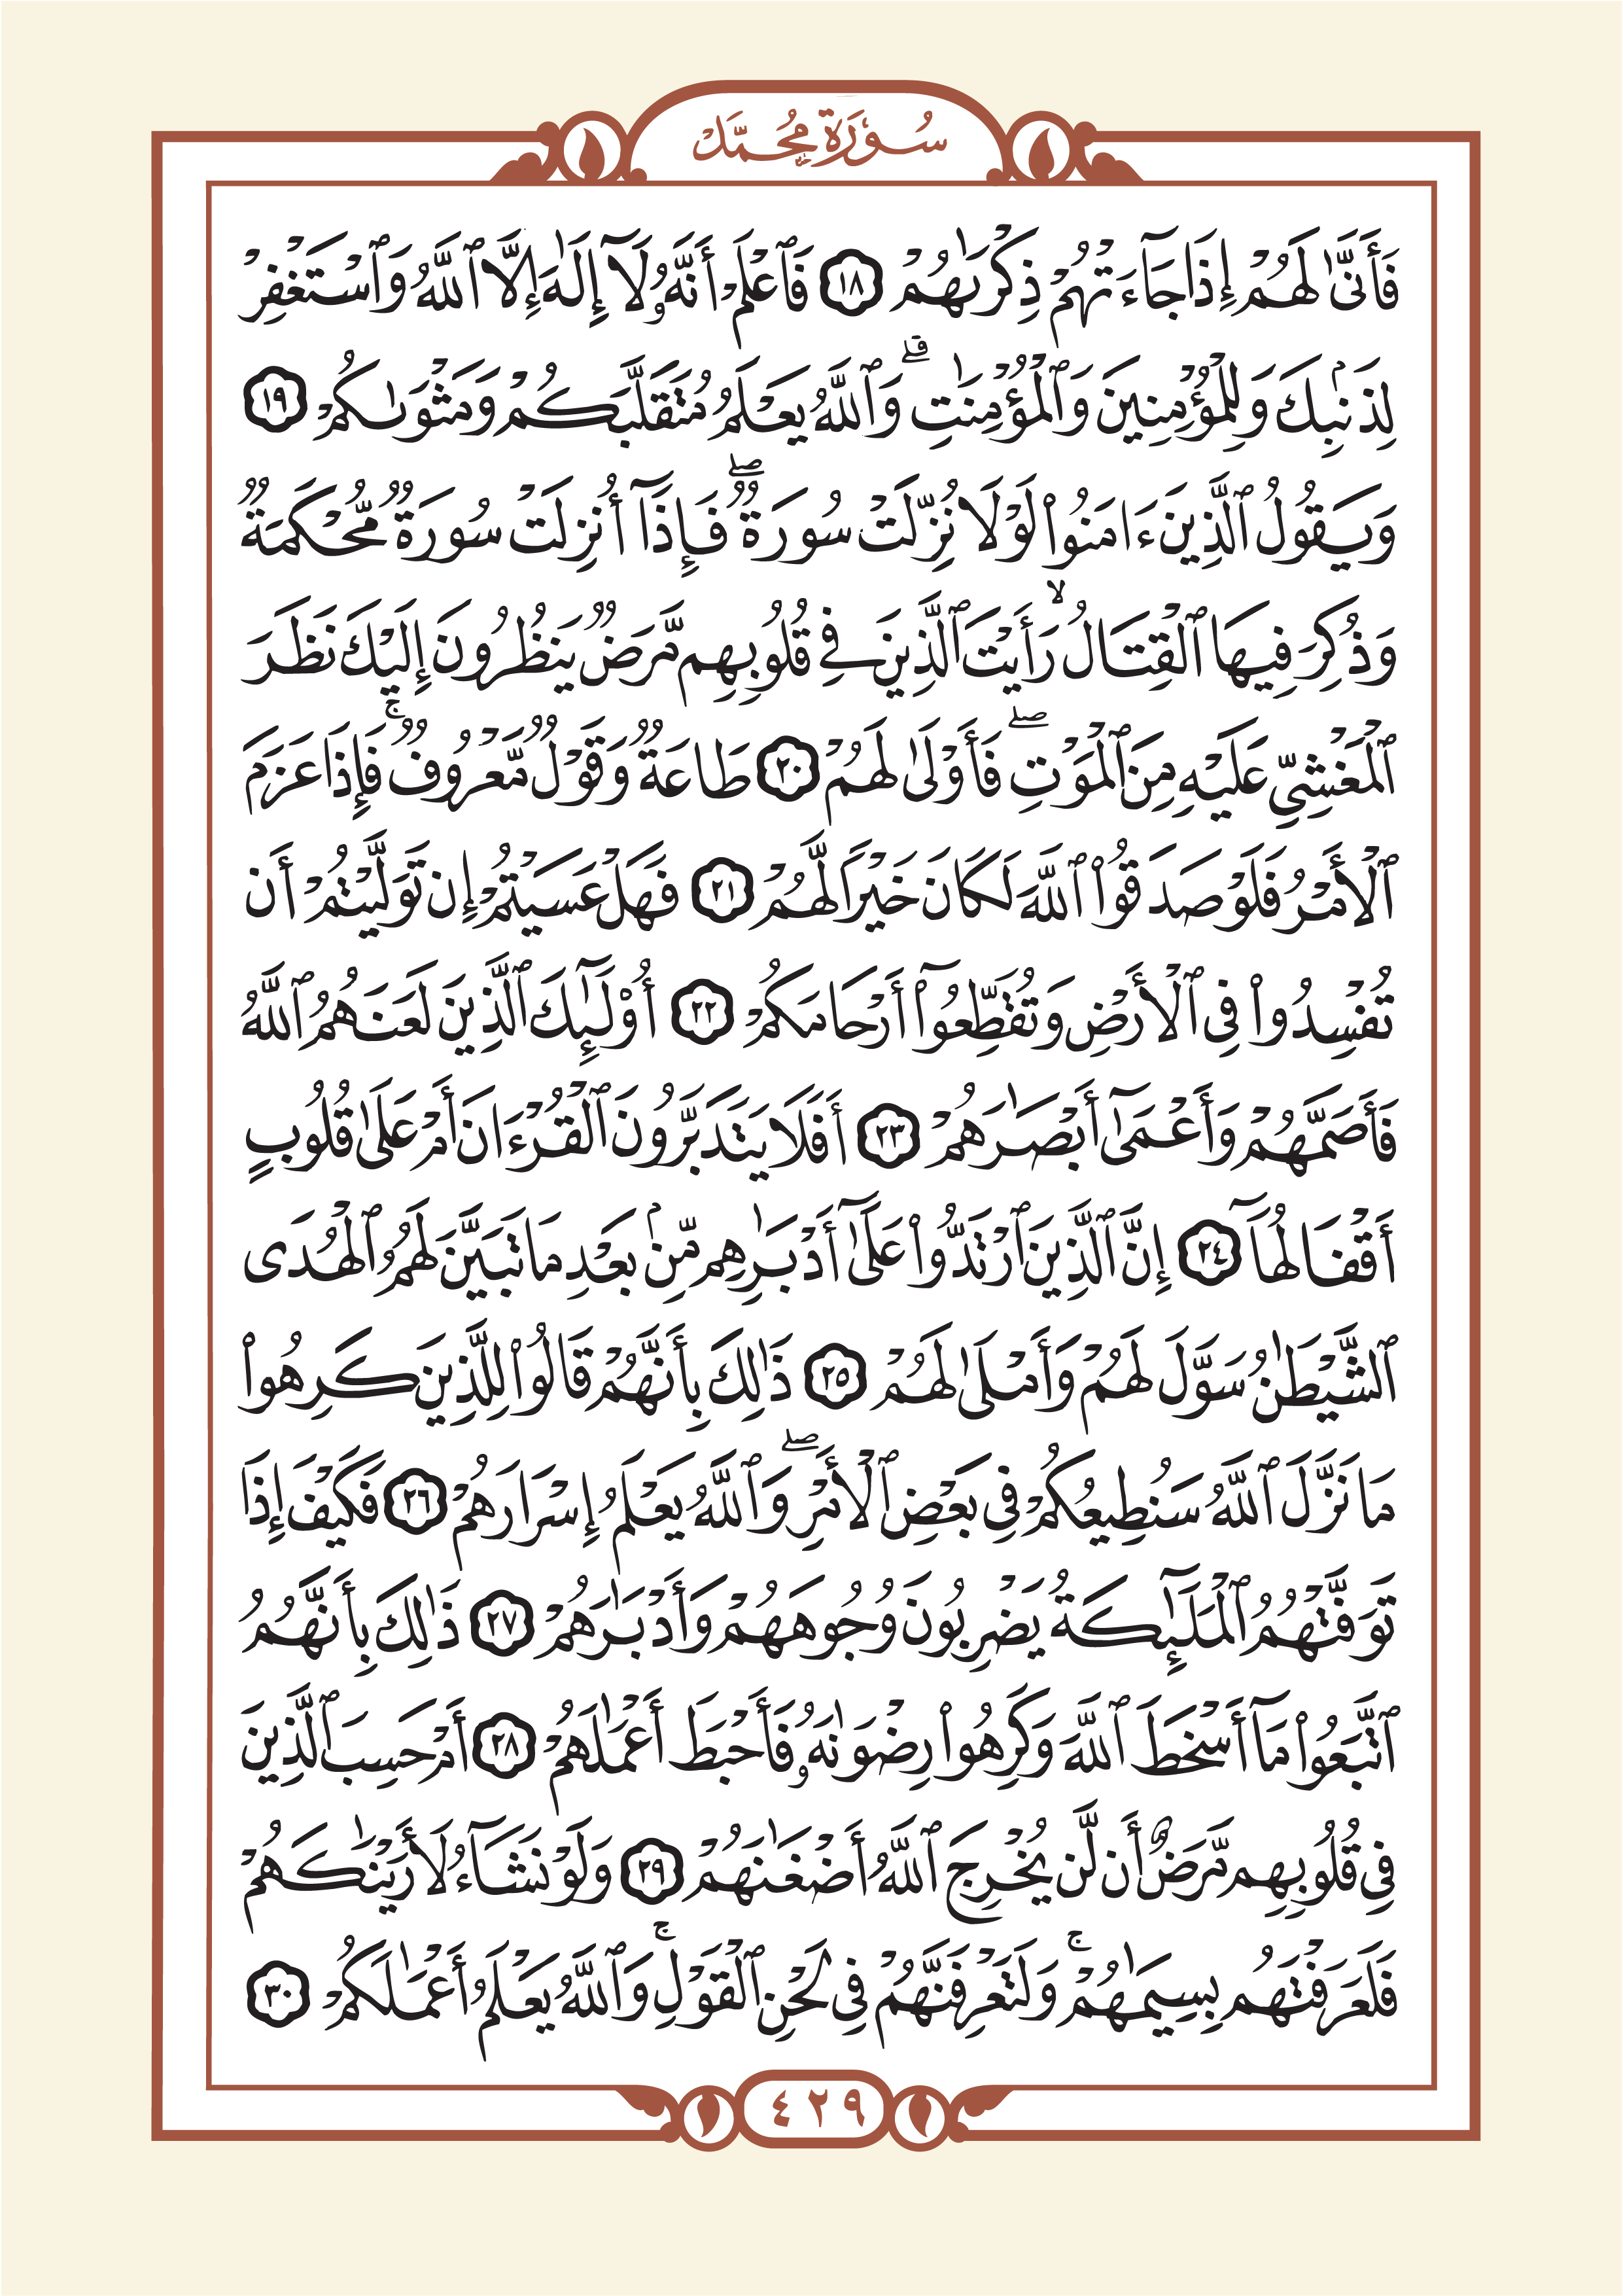 سُورَةُ مُحَمَّدٍ
فَأَنَّىٰ لَهُمْ إِذَا جَآءَتْهُمْ ذِكْرَىٰهُمْ ١٨ فَٱعْلَمْ أَنَّهُۥ لَآ إِلَٰهَ إِلَّا ٱللَّهُ وَٱسْتَغْفِرْ
لِذَنۢبِكَ وَلِلْمُؤْمِنِينَ وَٱلْمُؤْمِنَٰتِ ۗ وَٱللَّهُ يَعْلَمُ مُتَقَلَّبَكُمْ وَمَثْوَىٰكُمْ ١٩
وَيَقُولُ ٱلَّذِينَ ءَامَنُوا۟ لَوْلَا نُزِّلَتْ سُورَةٌ ۖ فَإِذَآ أُنزِلَتْ سُورَةٌ مُّحْكَمَةٌ
وَذُكِرَ فِيهَا ٱلْقِتَالُ ۙ رَأَيْتَ ٱلَّذِينَ فِى قُلُوبِهِم مَّرَضٌ يَنظُرُونَ إِلَيْكَ نَظَرَ
ٱلْمَغْشِىِّ عَلَيْهِ مِنَ ٱلْمَوْتِ ۖ فَأَوْلَىٰ لَهُمْ ٢٠ طَاعَةٌ وَقَوْلٌ مَّعْرُوفٌ ۚ فَإِذَا عَزَمَ
ٱلْأَمْرُ فَلَوْ صَدَقُوا۟ ٱللَّهَ لَكَانَ خَيْرًا لَّهُمْ ٢١ فَهَلْ عَسَيْتُمْ إِن تَوَلَّيْتُمْ أَن
تُفْسِدُوا۟ فِى ٱلْأَرْضِ وَتُقَطِّعُوٓا۟ أَرْحَامَكُمْ ٢٢ أُو۟لَٰٓئِكَ ٱلَّذِينَ لَعَنَهُمُ ٱللَّهُ
فَأَصَمَّهُمْ وَأَعْمَىٰٓ أَبْصَٰرَهُمْ ٢٣ أَفَلَا يَتَدَبَّرُونَ ٱلْقُرْءَانَ أَمْ عَلَىٰ قُلُوبٍ
أَقْفَالُهَآ ٢٤ إِنَّ ٱلَّذِينَ ٱرْتَدُّوا۟ عَلَىٰٓ أَدْبَٰرِهِم مِّنۢ بَعْدِ مَا تَبَيَّنَ لَهُمُ ٱلْهُدَى
ٱلشَّيْطَٰنُ سَوَّلَ لَهُمْ وَأَمْلَىٰ لَهُمْ ٢٥ ذَٰلِكَ بِأَنَّهُمْ قَالُوا۟ لِلَّذِينَ كَرِهُوا۟
مَا نَزَّلَ ٱللَّهُ سَنُطِيعُكُمْ فِى بَعْضِ ٱلْأَمْرِ ۖ وَٱللَّهُ يَعْلَمُ إِسْرَارَهُمْ ٢٦ فَكَيْفَ إِذَا
تَوَفَّتْهُمُ ٱلْمَلَٰٓئِكَةُ يَضْرِبُونَ وُجُوهَهُمْ وَأَدْبَٰرَهُمْ ٢٧ ذَٰلِكَ بِأَنَّهُمُ
ٱتَّبَعُوا۟ مَآ أَسْخَطَ ٱللَّهَ وَكَرِهُوا۟ رِضْوَٰنَهُۥ فَأَحْبَطَ أَعْمَٰلَهُمْ ٢٨ أَمْ حَسِبَ ٱلَّذِينَ
فِى قُلُوبِهِم مَّرَضٌ أَن لَّن يُخْرِجَ ٱللَّهُ أَضْغَٰنَهُمْ ٢٩ وَلَوْ نَشَآءُ لَأَرَيْنَٰكَهُمْ
فَلَعَرَفْتَهُم بِسِيمَٰهُمْ ۚ وَلَتَعْرِفَنَّهُمْ فِى لَحْنِ ٱلْقَوْلِ ۚ وَٱللَّهُ يَعْلَمُ أَعْمَٰلَكُمْ ٣٠
٤٢٩